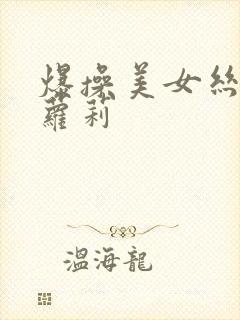 爆操美女絲
蘿莉
溫海龍